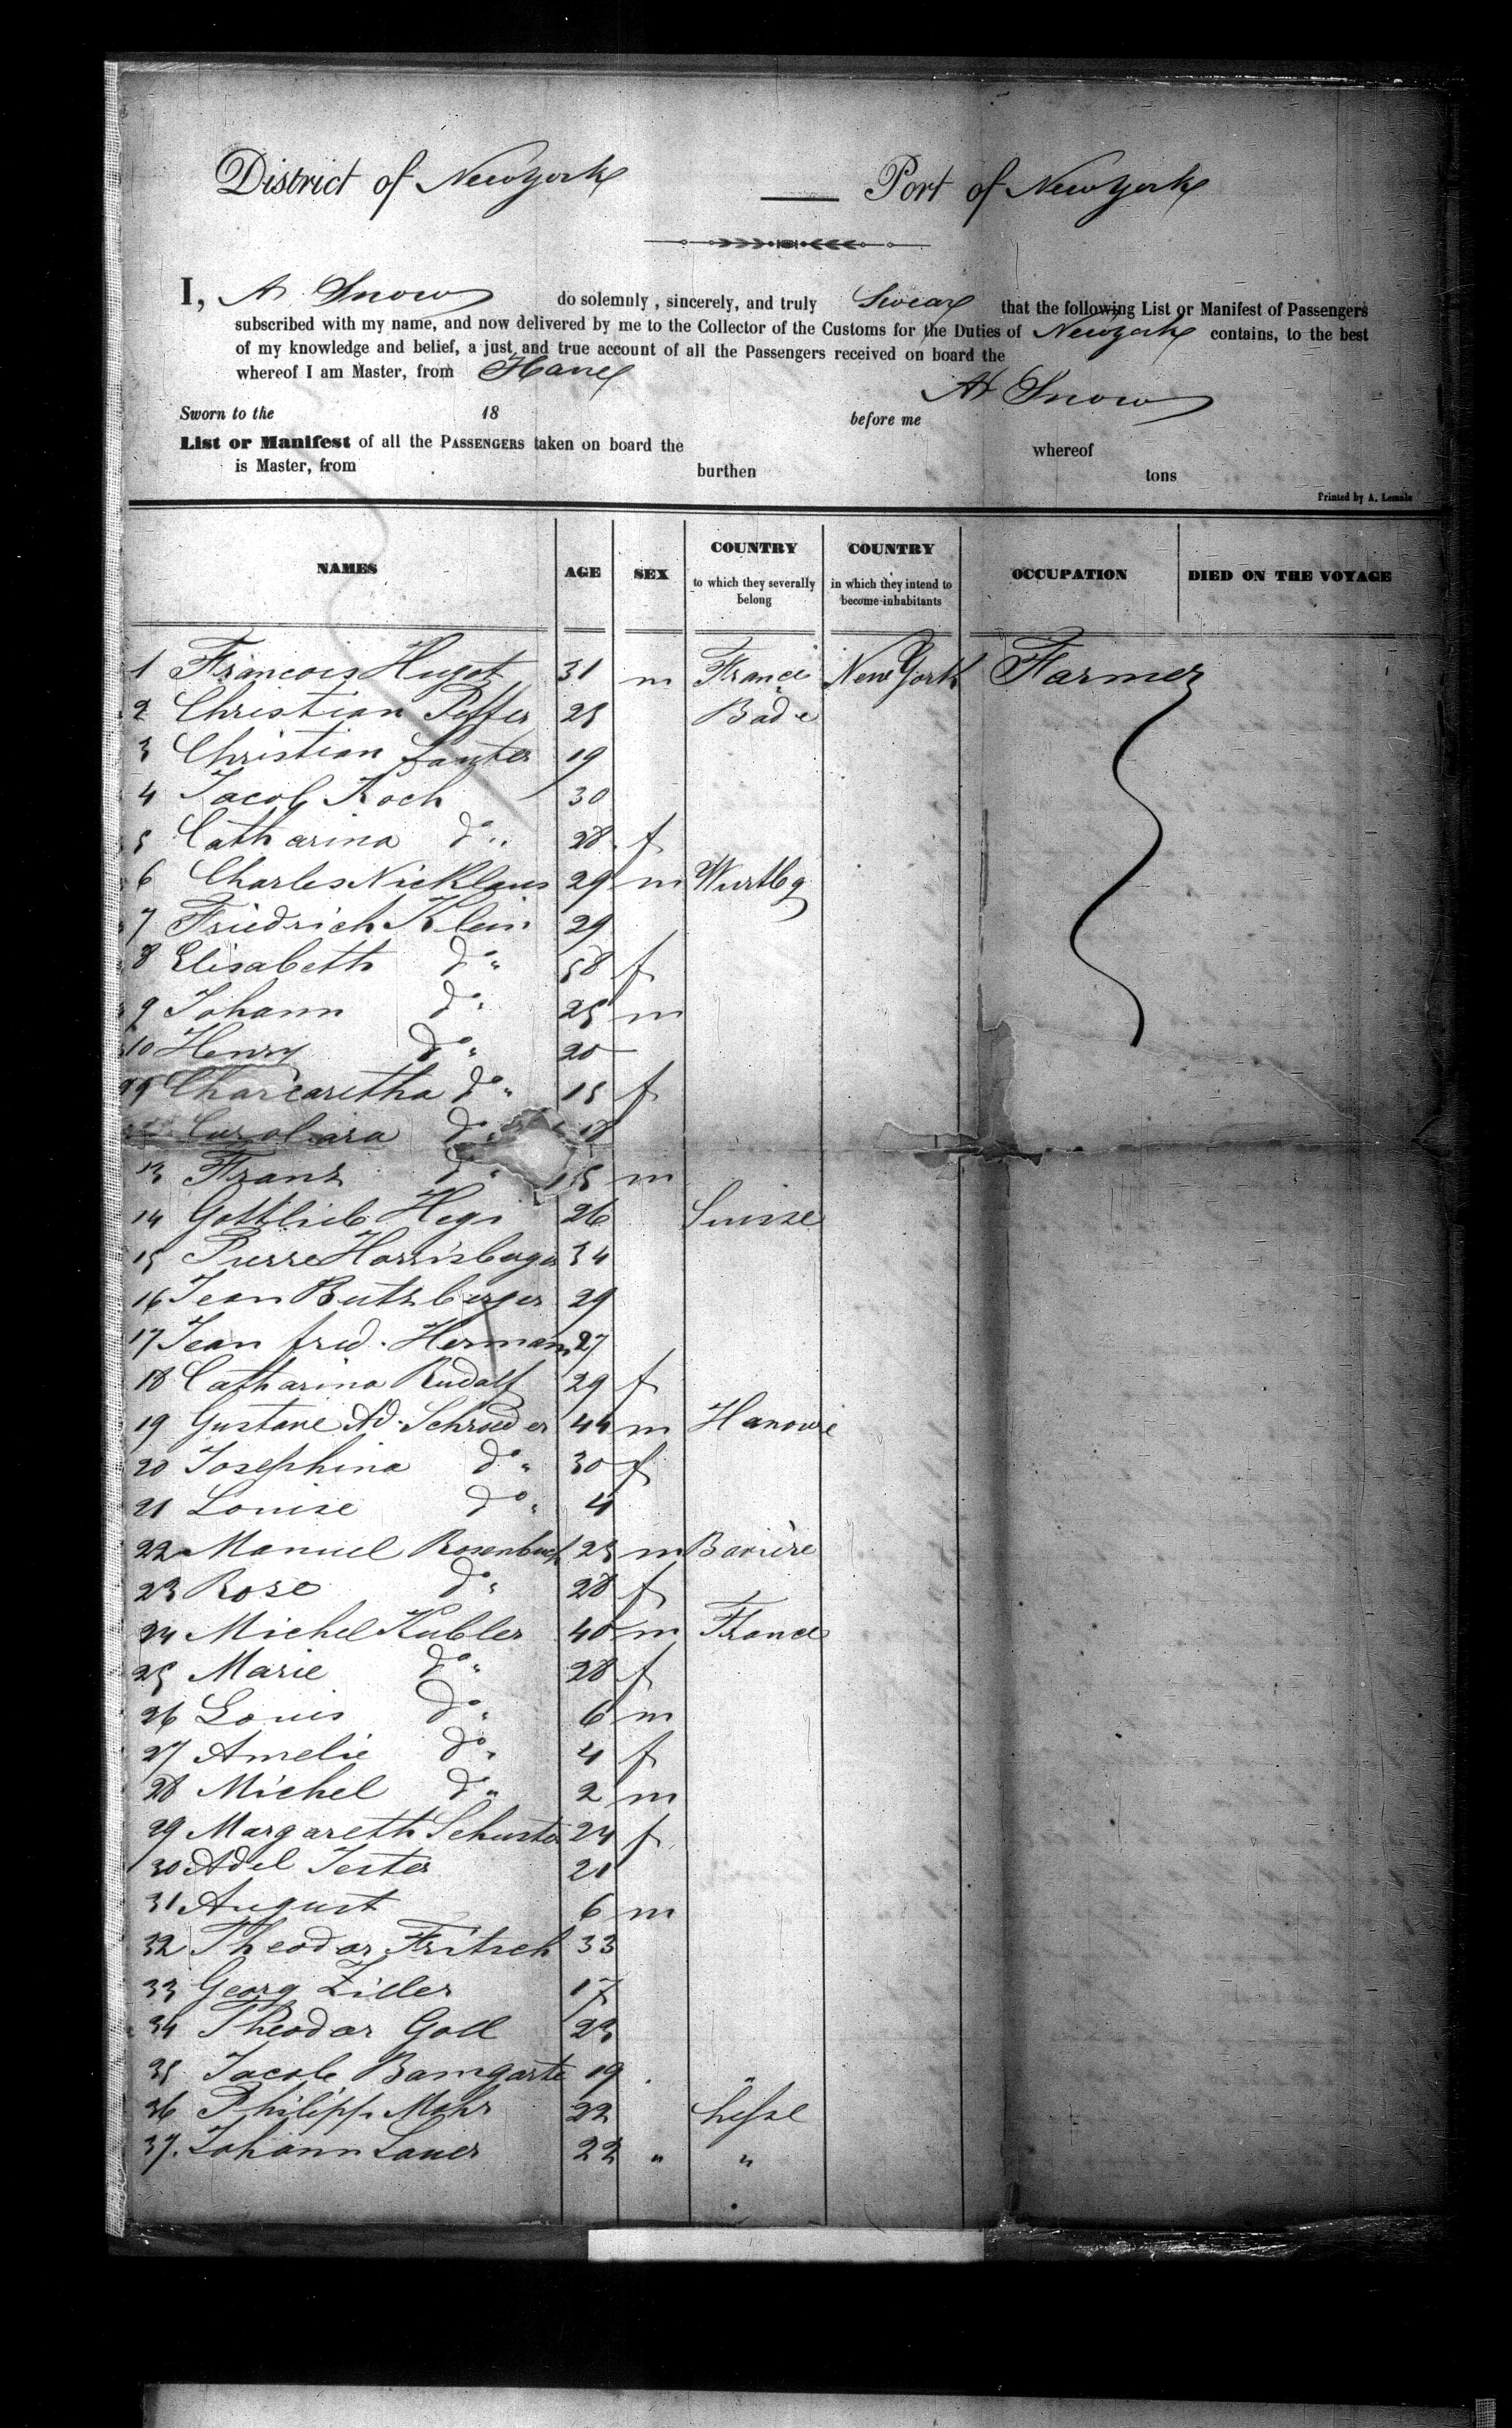 District of New York Port of New York
I, A Snow do solemnly, sincerely, and truly Swear that the following List or Manifest of Passengers
subscribed with my name, and now delivered by me to the Collector of the Customs for the Duties of New york contains, to the best
of my knowledge and belief, a just and true account of all the Passengers received on board the
whereof I am Master, from Havre
A Snow
Sworn to the 18 before me
List or Manifest of all the PASSENGERS taken on board the whereof
is Master, from burthen tons
Printed by A. Lemale
NAMES AGE SEX COUNTRY to which they severally belong COUNTRY in which they intend to become inhabitants OCCUPATION DIED ON THE VOYAGE
1 Francois Hugot 31 m France New York Farmer
2 Christian Peffer 25 Bade
3 Christian Lauter 19
4 Jacob Koch 30
5 Catharina do 28 f
6 Charles Nicklaus 29 m Wurtbg
7 Friedrich Klein 29
8 Elisabeth do 58 f
9 Johann do 25 m
10 Henry do 20
do 15 f
do 18
13 Franz do 15 m
14 Gottlieb Hegi 26 Suisse
15 Pierre Harrisberger 34
16 Jean Butzberger 29
17 Jean fred. Hermann 27
18 Catharina Rudolf 29 f
19 Gustave Ad. Schroeder 44 m Hanovre
20 Josephina do 30 f
21 Louise do 4
22 Manuel Rosenbach 25 m Bavière
23 Rose do 28 f
24 Michel Kubler 40 m France
25 Marie do 28 f
26 Louis do 6 m
27 Amelie do 4 f
28 Michel do 2 m
29 Margareth Schuster 24 f
30 Adel Jester 21
31 August 6 m
32 Theodor Fritsch 33
33 Georg Ziller 17
34 Theodor Goll 23
35 Jacob Bamgarte 19 "
36 Philipp Mohr 22 hesse
37. Johann Lauer 22 " "